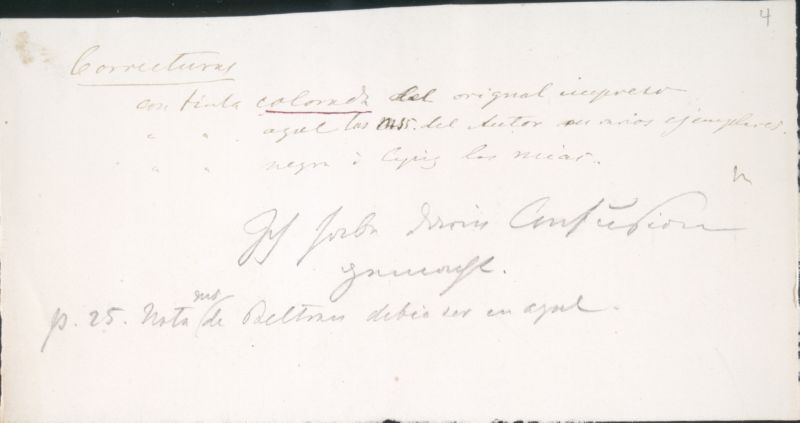 4
Correcturas
con tinta colorada del orignal impreso
" " azul las mss. del Autor en varios ejemplares.
" " negra ó lapiz las mias.
Ich habe darin Confusion
gemacht.
p. 25. Nota ms de Beltran debia ser en azul.